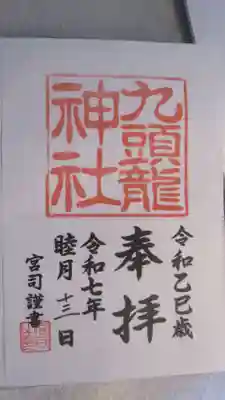 九頭龍
神社
令和乙巳歳
奉拝
令和七年
睦月十三日
宮司謹書